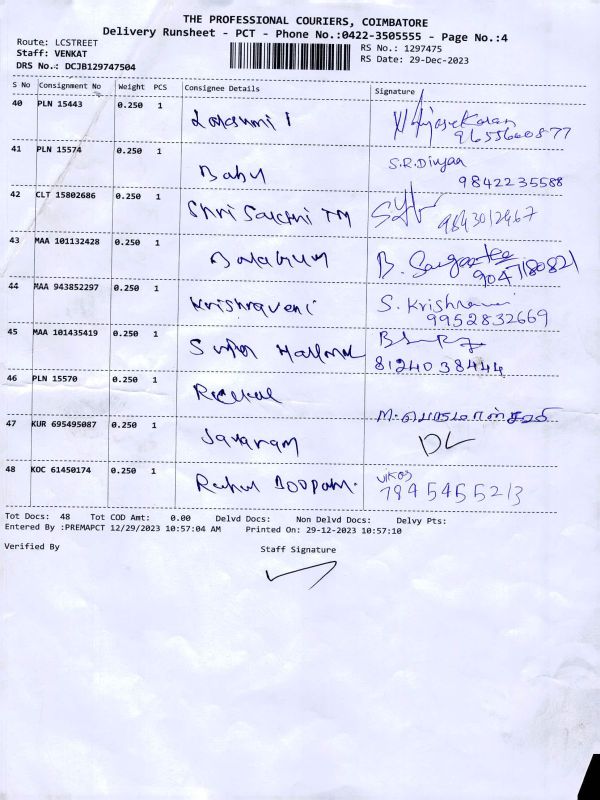 THE PROFESSIONAL COURIERS, COIMBATORE
Delivery Runsheet - PCT - Phone No.:0422-3505555 - Page No.:4
Route: LCSTREET
Staff: VENKAT
DRS No.: DCJB129747504
RS No.: 1297475
RS Date: 29-Dec-2023
S No Consignment No Weight PCS Consignee Details Signature
40 PLN 15443 0.250 1 Lakshmi 1
9655660877
41 PLN 15574 0.250 1 Babu S.R.Divyaa
9842235588
42 CLT 15802686 0.250 1 Shri Sakthi TM
9843012467
43 MAA 101132428 0.250 1 B.
9047180821
44 MAA 943852297 0.250 1 Krishnaveni S. Krishnaveni
9952832669
45 MAA 101435419 0.250 1
8124038444
46 PLN 15570 0.250 1
47 KUR 695495087 0.250 1 Jayaram
48 KOC 61450174 0.250 1 Rahul Boopathi
Tot Docs: 48 Tot COD Amt: 0.00 Delvd Docs: Non Delvd Docs: Delvy Pts:
Entered By :PREMAPCT 12/29/2023 10:57:04 AM Printed On: 29-12-2023 10:57:10
Verified By Staff Signature